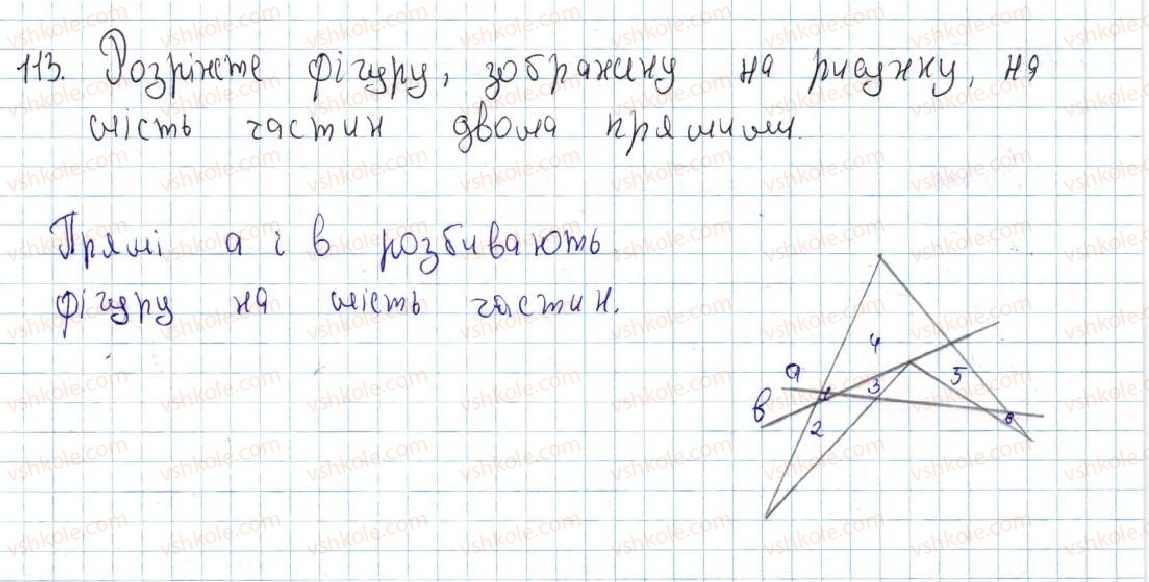 113. Розріжте фігуру, зображину на рисунку, на
шість частин двома прямими.
Прямі а і в розбивають
фігуру на шість частин.
а
в
4
5
3
1
2
6
vshkole.com